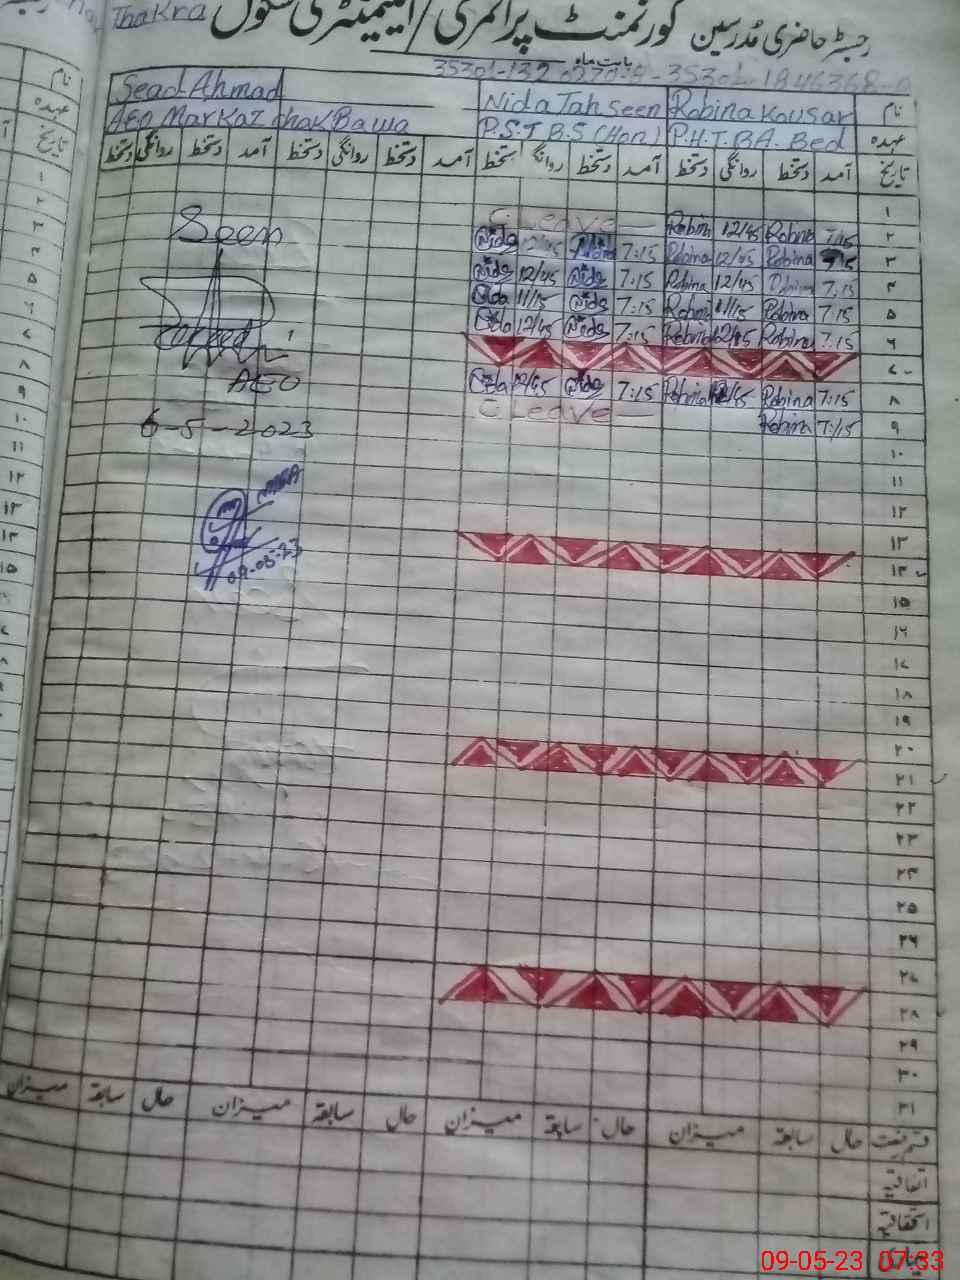 Thakra
رجسٹر حاضری مدرسین گورنمنٹ پرائمری / ایلیمنٹری سکول
بابت ماہ
نام Robina Kousar Nida Tahseen Sead Ahmad
عہدہ P.H.T BA. Bed P.S.T B.S (Hon) AEO Markaz chak Bawa
تاریخ آمد دستخط روانگی دستخط آمد دستخط روانگی دستخط آمد دستخط روانگی دستخط آمد دستخط روانگی دستخط
۱
۲ 7:15 Robina 12/45 Robina C. Leave Seen
۳ Robina 12/45 Robina 7:15 Nida
۴ 7:15 12/45 Robina 7:15 Nida 12/45 Nida
۵ 7:15 Robina 11/15 Robina 7:15 Nida 11/15 Nida
۶ 7:15 Robina 12/45 Robina 7:15 Nida 12/45 Nida
۷
۸ 7:15 Robina 12/45 Robina 7:15 Nida 12/45 Nida AEO
۹ 7:15 Robina C. Leave 6-5-2023
۱۰
۱۱
۱۲
۱۳
۱۴ 09-05-23
۱۵
۱۶
۱۷
۱۸
۱۹
۲۰
۲۱
۲۲
۲۳
۲۴
۲۵
۲۶
۲۷
۲۸
۲۹
۳۰
۳۱
قسم رخصت حال سابقہ میزان حال سابقہ میزان حال سابقہ میزان حال سابقہ میزان
اتفاقیہ
استحقاقیہ
بیماری
09-05-23 07:33